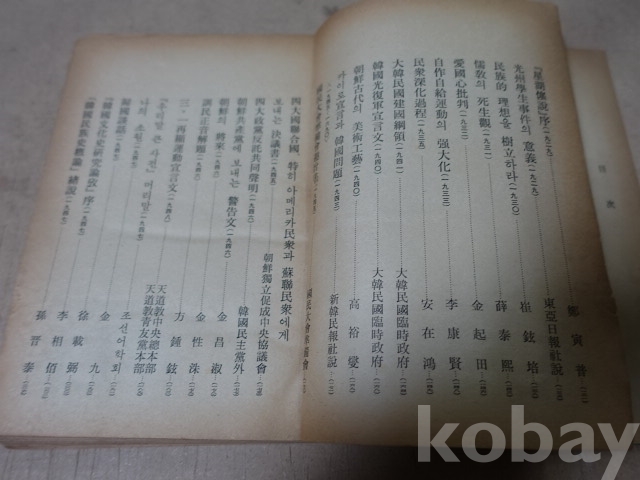 目次
『星湖僿說』序(一九二九) 鄭寅普
光州學生事件의 意義(一九二九) 東亞日報社說
民族的 理想을 樹立하라(一九三〇) 崔鉉培
儒敎의 死生觀(一九三一) 薛泰熙
愛國心批判(一九三二) 金起田
自作自給運動의 强大化(一九三三) 李康賢
民衆深化過程 安在鴻
大韓民國建國綱領(一九四一) 大韓民國臨時政府
韓國光復軍宣言文(一九四〇) 大韓民國臨時政府
朝鮮古代의 美術工藝(一九四〇) 高裕燮
카이로宣言과 韓國問題(一九四三) 新韓民報社說
四大國聯合國 特히 아메리카民衆과 蘇聯民衆에게
보내는 決議書 朝鮮獨立促成中央協議會
四大政黨反託共同聲明(一九四六) 韓國民主黨外
朝鮮共產黨에 보내는 警告文(一九四六) 金昌淑
朝鮮의 將來(一九四六) 金性洙
訓民正音解題(一九四六) 方鍾鉉
三·一再顯運動宣言文 天道敎中央總本部
天道敎靑友黨本部
「우리말 큰 사전」머리말(一九四七) 조선어학회
나의 소원(一九四七) 金九
韓國護語(一九四七) 徐載弼
『韓國文化史硏究論攷』序(一九四七) 李相佰
『韓國民族史槪論』緖說(一九四七) 孫晋泰
kobay